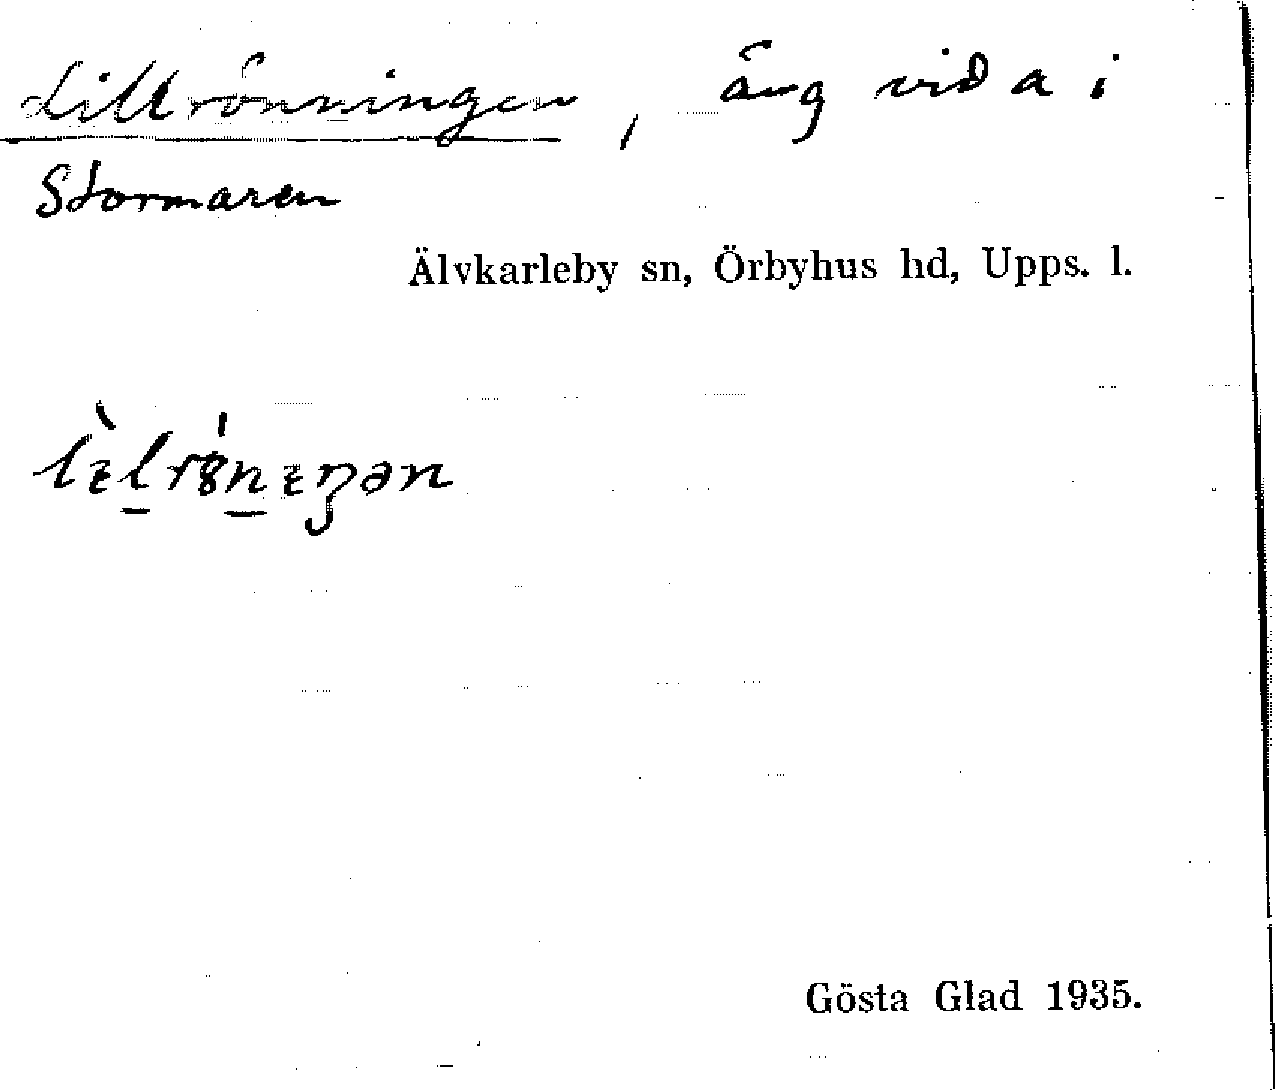 Lillrönningen, äng vid a i
Stormaren
Älvkarleby sn, Örbyhus hd, Upps. l.
Gösta Glad 1935.